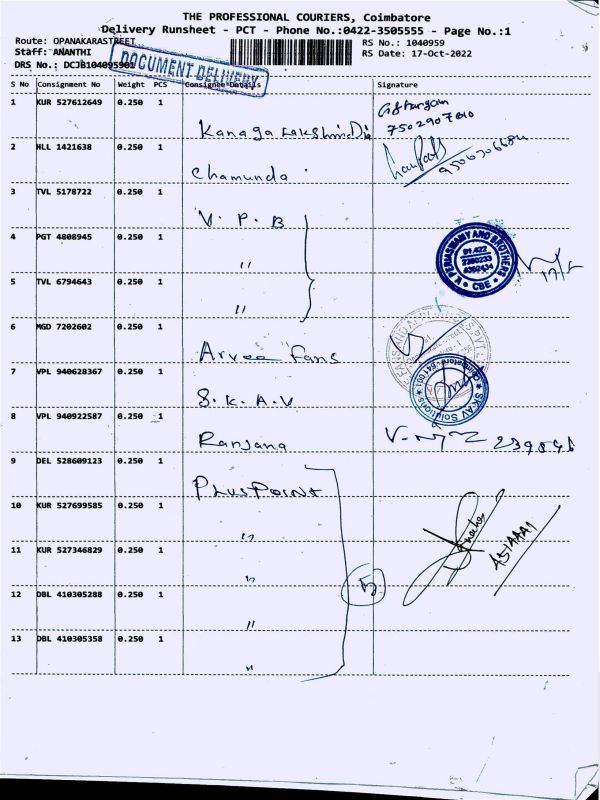 THE PROFESSIONAL COURIERS, Coimbatore
Delivery Runsheet - PCT - Phone No.:0422-3505555 - Page No.:1
Route: OPANAKARASTREET
RS No.: 1040959
Staff: ANANTHI
RS Date: 17-Oct-2022
DRS No.: DCJB104095901
DOCUMENT DELIVERY
S No Consignment No Weight PCS Consignee Details Signature
1 KUR 527612649 0.250 1
Kanaga Lakshmi
7502907010
2 HLL 1421638 0.250 1
Chamunda
3 TVL 5178722 0.250 1
V. P. B
4 PGT 4808945 0.250 1
"
K. PERIASWAMY AND BROTHERS
CBE
5 TVL 6794643 0.250 1
"
6 MGD 7202602 0.250 1
Arvee Fans
7 VPL 940628367 0.250 1
S. K. A. V
SKAV Solutions
8 VPL 940922587 0.250 1
Ranjana
9 DEL 528609123 0.250 1
Plus Point
10 KUR 527699585 0.250 1
"
11 KUR 527346829 0.250 1
"
5
12 DBL 410305288 0.250 1
"
13 DBL 410305358 0.250 1
"